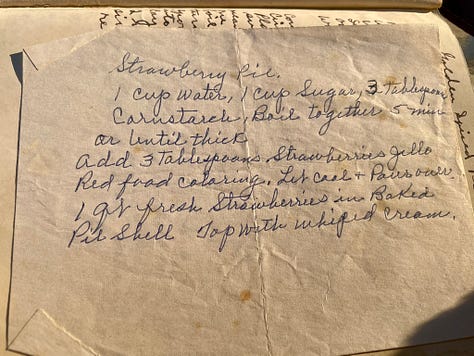 Strawberry Pie.
1 Cup Water, 1 Cup Sugar, 3 Tablespoons
Cornstarch, Boil together 5 min
or Until thick
add 3 Tablespoons Strawberries Jello
Red food coloring, Let Cool + Pour over
1 qt fresh Strawberries in Baked
Pie Shell Top with whiped Cream.